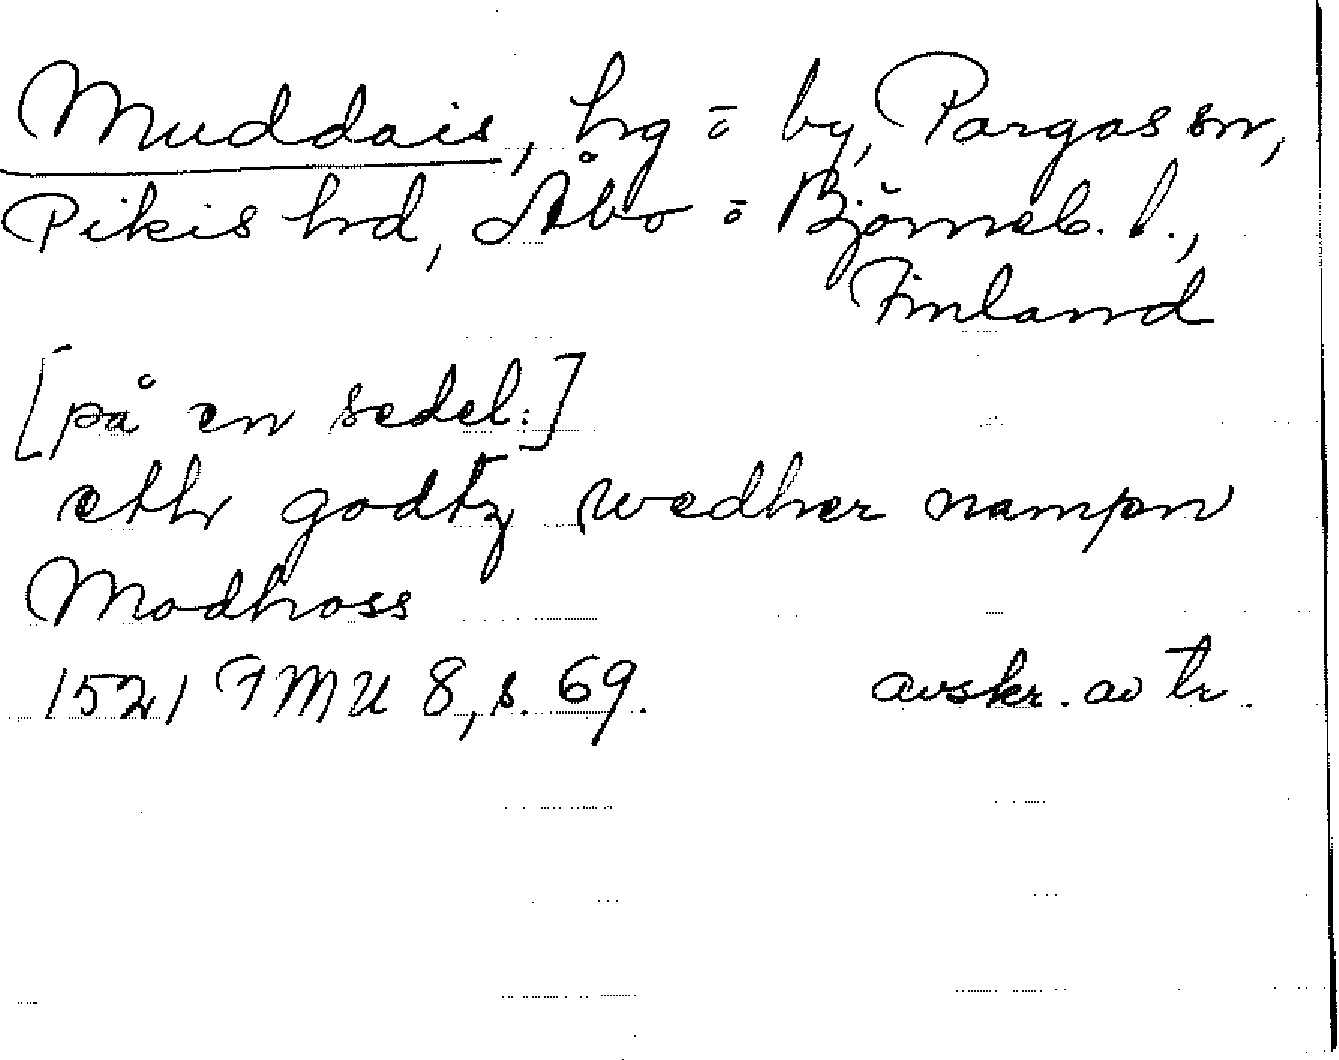 Muddais, hg o by, Pargas sn,
Pikis hd, Åbo o Björneb. l.,
Finland
[på en sedel:]
etth godtz wedher nampn
Modhoss
1521 FMU 8, s. 69. avskr. av tr.